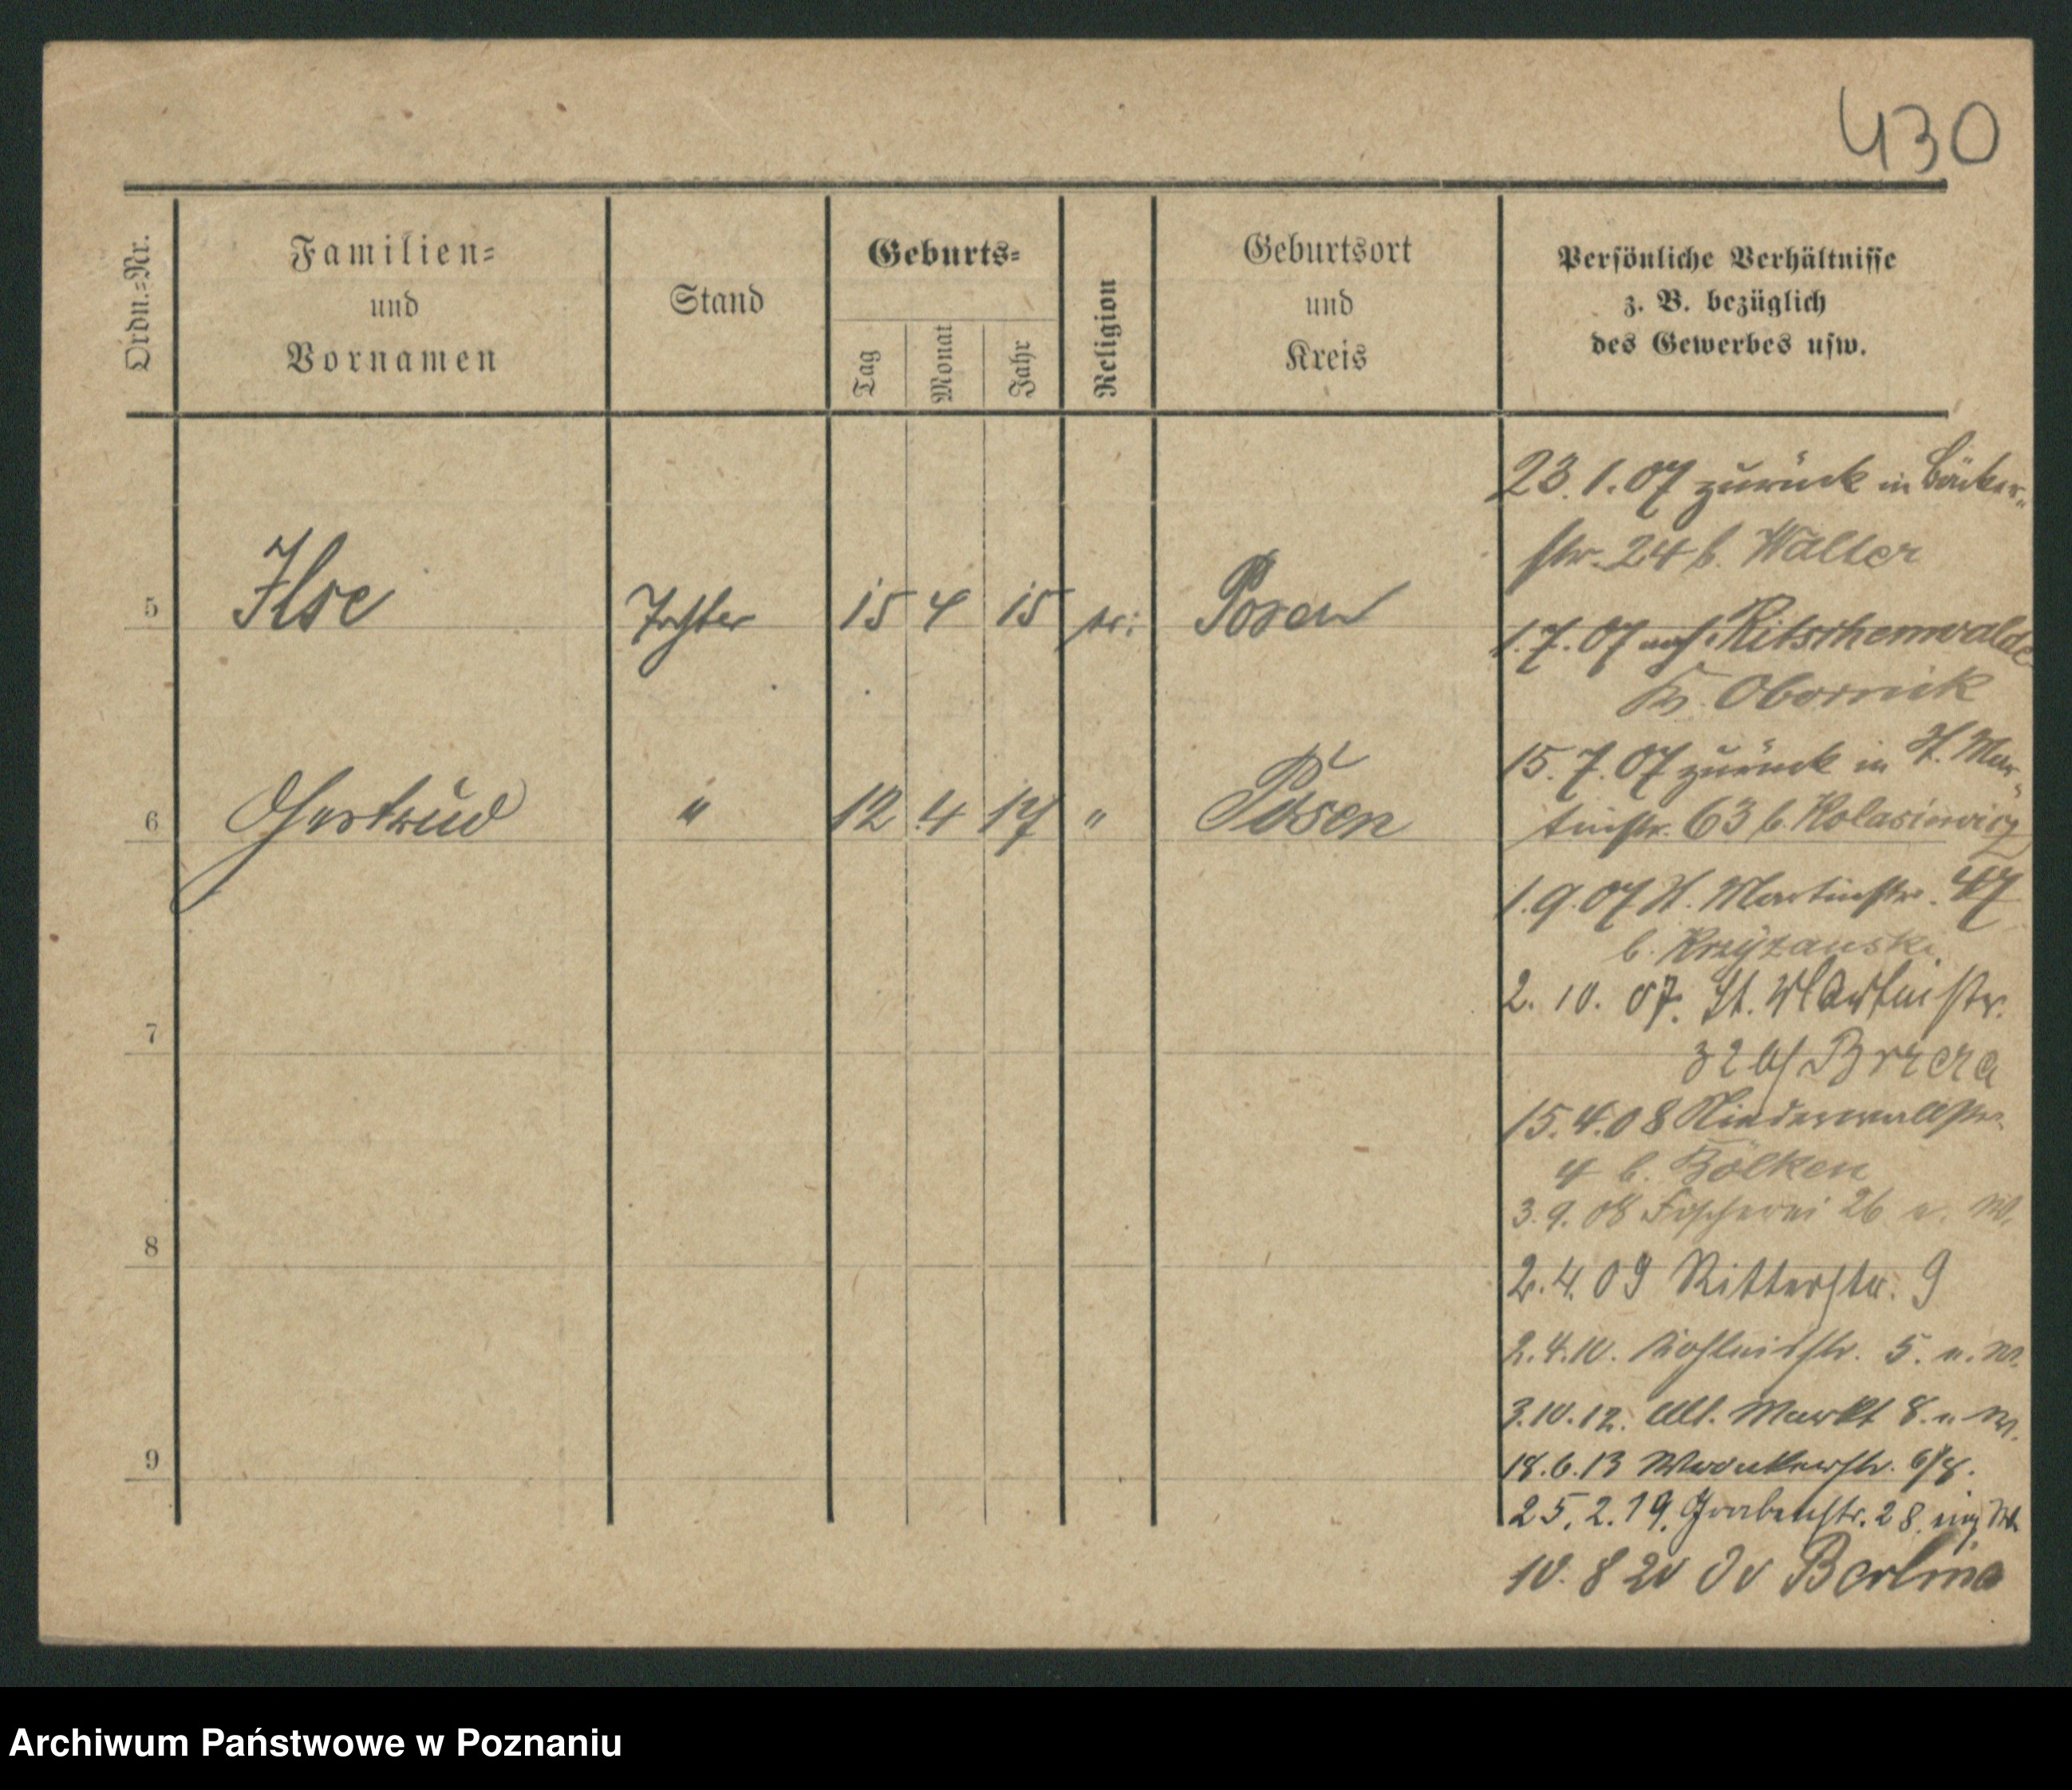 430
Ordn.=Nr.
Familien=
und
Vornamen
Stand
Geburts=
Tag
Monat
Jahr
Religion
Geburtsort
und
Kreis
Persönliche Verhältnisse
z. B. bezüglich
des Gewerbes usw.
5 Ilse Tochter 15 4 15 Posen
6 Gertrud " 12 4 17 " Posen
7
8
9
23.1.07 zurück in Bäcker-
str. 24 b. Walter
1.7.07 nach Ritschenwalde
Kr. Obornik
15.7.07 zurück in St. Mar-
tinstr. 63 b.
1.9.07 St. Martinstr. 47
b.
2. 10. 07. St. Martinstr.
32
15.4.08 Niederwallstr.
4 b. Bölken
3.9.08 Fischerei 26 u. W.
2.4.09 Ritterstr. 9
2.4.10. 5. u. W.
3.10.12. Alt. Markt 8. u W.
18.6.13 Wronkerstr. 6/8.
25.2.19. Grabenstr. 28
10. 8 20 Berlin
Archiwum Państwowe w Poznaniu